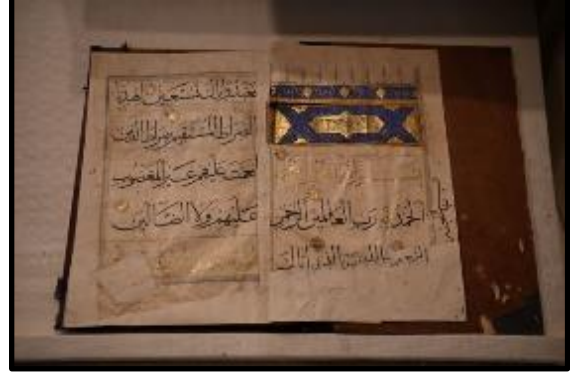 الحمد لله رب العلمين الرحمن
الرحيم ملك يوم الدين اياك
نعبد واياك نستعين اهدنا
الصراط المستقيم صراط الذين
انعمت عليهم غير المغضوب
عليهم ولا الضالين